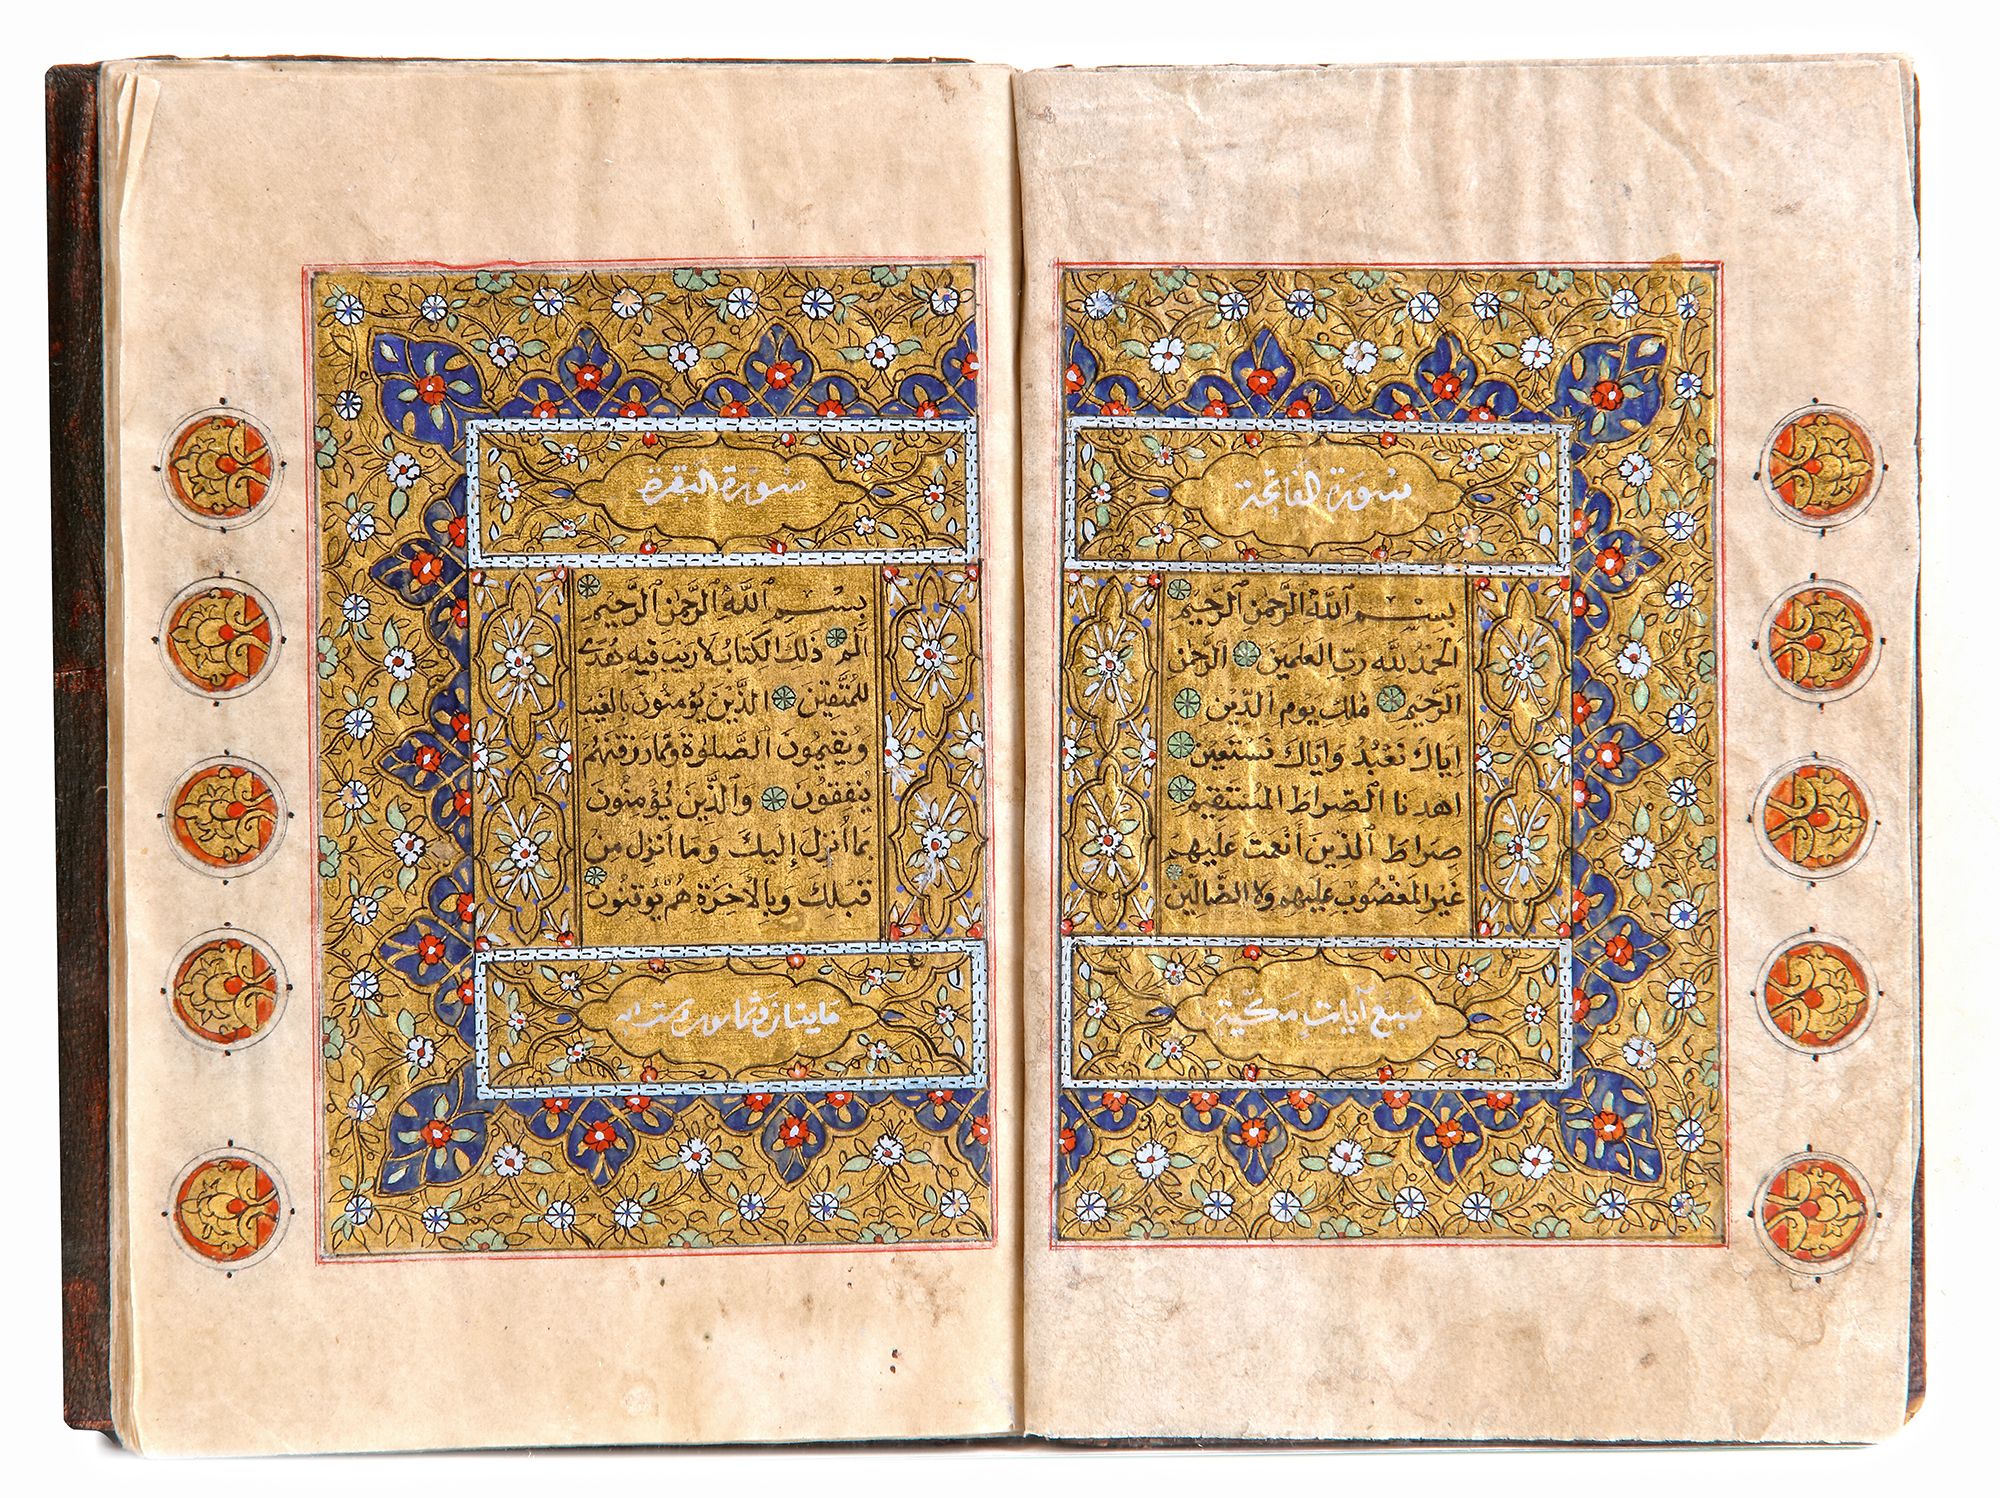 سورة الفاتحة
بِسْمِ ٱللَّهِ ٱلرَّحْمَٰنِ ٱلرَّحِيمِ
الحَمْدُ لِلَّهِ رَبِّ العَلَمِينَ الرَّحْمَنِ
الرَّحِيمِ مَلِكِ يَوْمِ الدِّينِ
اِيَّاكَ نَعْبُدُ وَاِيَّاكَ نَسْتَعِينُ
اِهْدِنَا الصِّرَاطَ المُسْتَقِيمَ
صِرَاطَ الَّذِينَ أَنْعَمْتَ عَلَيْهِمْ
غَيْرِ المَغْضُوبِ عَلَيْهِمْ وَلَا الضَّالِّينَ
سَبْع آيَات مَكِّيَّة
سورة البقرة
بِسْمِ ٱللَّهِ ٱلرَّحْمَٰنِ ٱلرَّحِيمِ
الم ذَلِكَ الكِتَابُ لَا رَيْبَ فِيهِ هُدًى
لِلْمُتَّقِينَ الَّذِينَ يُؤْمِنُونَ بِالْغَيْبِ
وَيُقِيمُونَ الصَّلٰوةَ وَمِمَّا رَزَقْنَهُمْ
يُنْفِقُونَ وَالَّذِينَ يُؤْمِنُونَ
بِمَا أُنْزِلَ إِلَيْكَ وَمَا أُنْزِلَ مِنْ
قَبْلِكَ وَبِالْأَخِرَةِ هُمْ يُوقِنُونَ
مايتان وثمانون